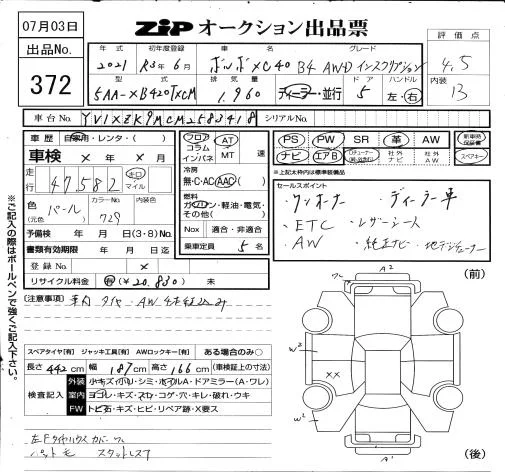 07月03日
ZIP オークション出品票
出品No.
372
評価点
4.5
内装
B
年式 初年度登録 車名 グレード
2021 R3年6月 ボルボXC40 B4 AWD インスクリプション
型式 排気量 ドア ハンドル
5AA-XB420TXCM 1,960 ディーラー・並行 5 左・右
車台No. YV1XZK9MCM2583418 シリアルNo.
車歴 自家用・レンタ・( )
車検 × 年 × 月
走行 47,582 キロ マイル
色 (元色) パール カラーNo. 729 内装色
予備検 年 月 日(3・8)No.
書類有効期限 年 月 日迄
登録No. ×
リサイクル料金 有(¥20,830) 未
フロア コラム インパネ AT MT 速
冷房 無・C・AC(AAC)( )
燃料 ガソリン・軽油・電気・その他( )
Nox 適合・非適合
乗車定員 5 名
PS PW SR 革 AW 新車時保証書
ナビ エアB TVチューナー 社外ナビ 社外AW スペアキー
※上記太枠内は標準装備品
セールスポイント
・ワンオーナー ・ディーラー車
・ETC ・レザーシート
・AW ・純正ナビ・地デジチューナー
(注意事項)
車内 タイヤ・AW 4本積込み
スペアタイヤ[有] ジャッキ工具[有] AWロックキー[有] ある場合のみ○
長さ 442 cm 幅 187 cm 高さ 166 cm (車検証上の寸法)
検査記入
外装 小キズ・凹・シミ・ホイルA・ドアミラー(A・ワレ)
室内 ヨゴレ・キズ・スレ・コゲ・穴・キレ・破れ・ウキ
FW トビ石・キズ・ヒビ・リペア跡・X要ス
左Fタイヤハウスカバーワレ
スタッドレス
(前)
A2
ワレ
W2
××
W2
A1
(後)
※ご記入の際はボールペンで強くご記入下さい。